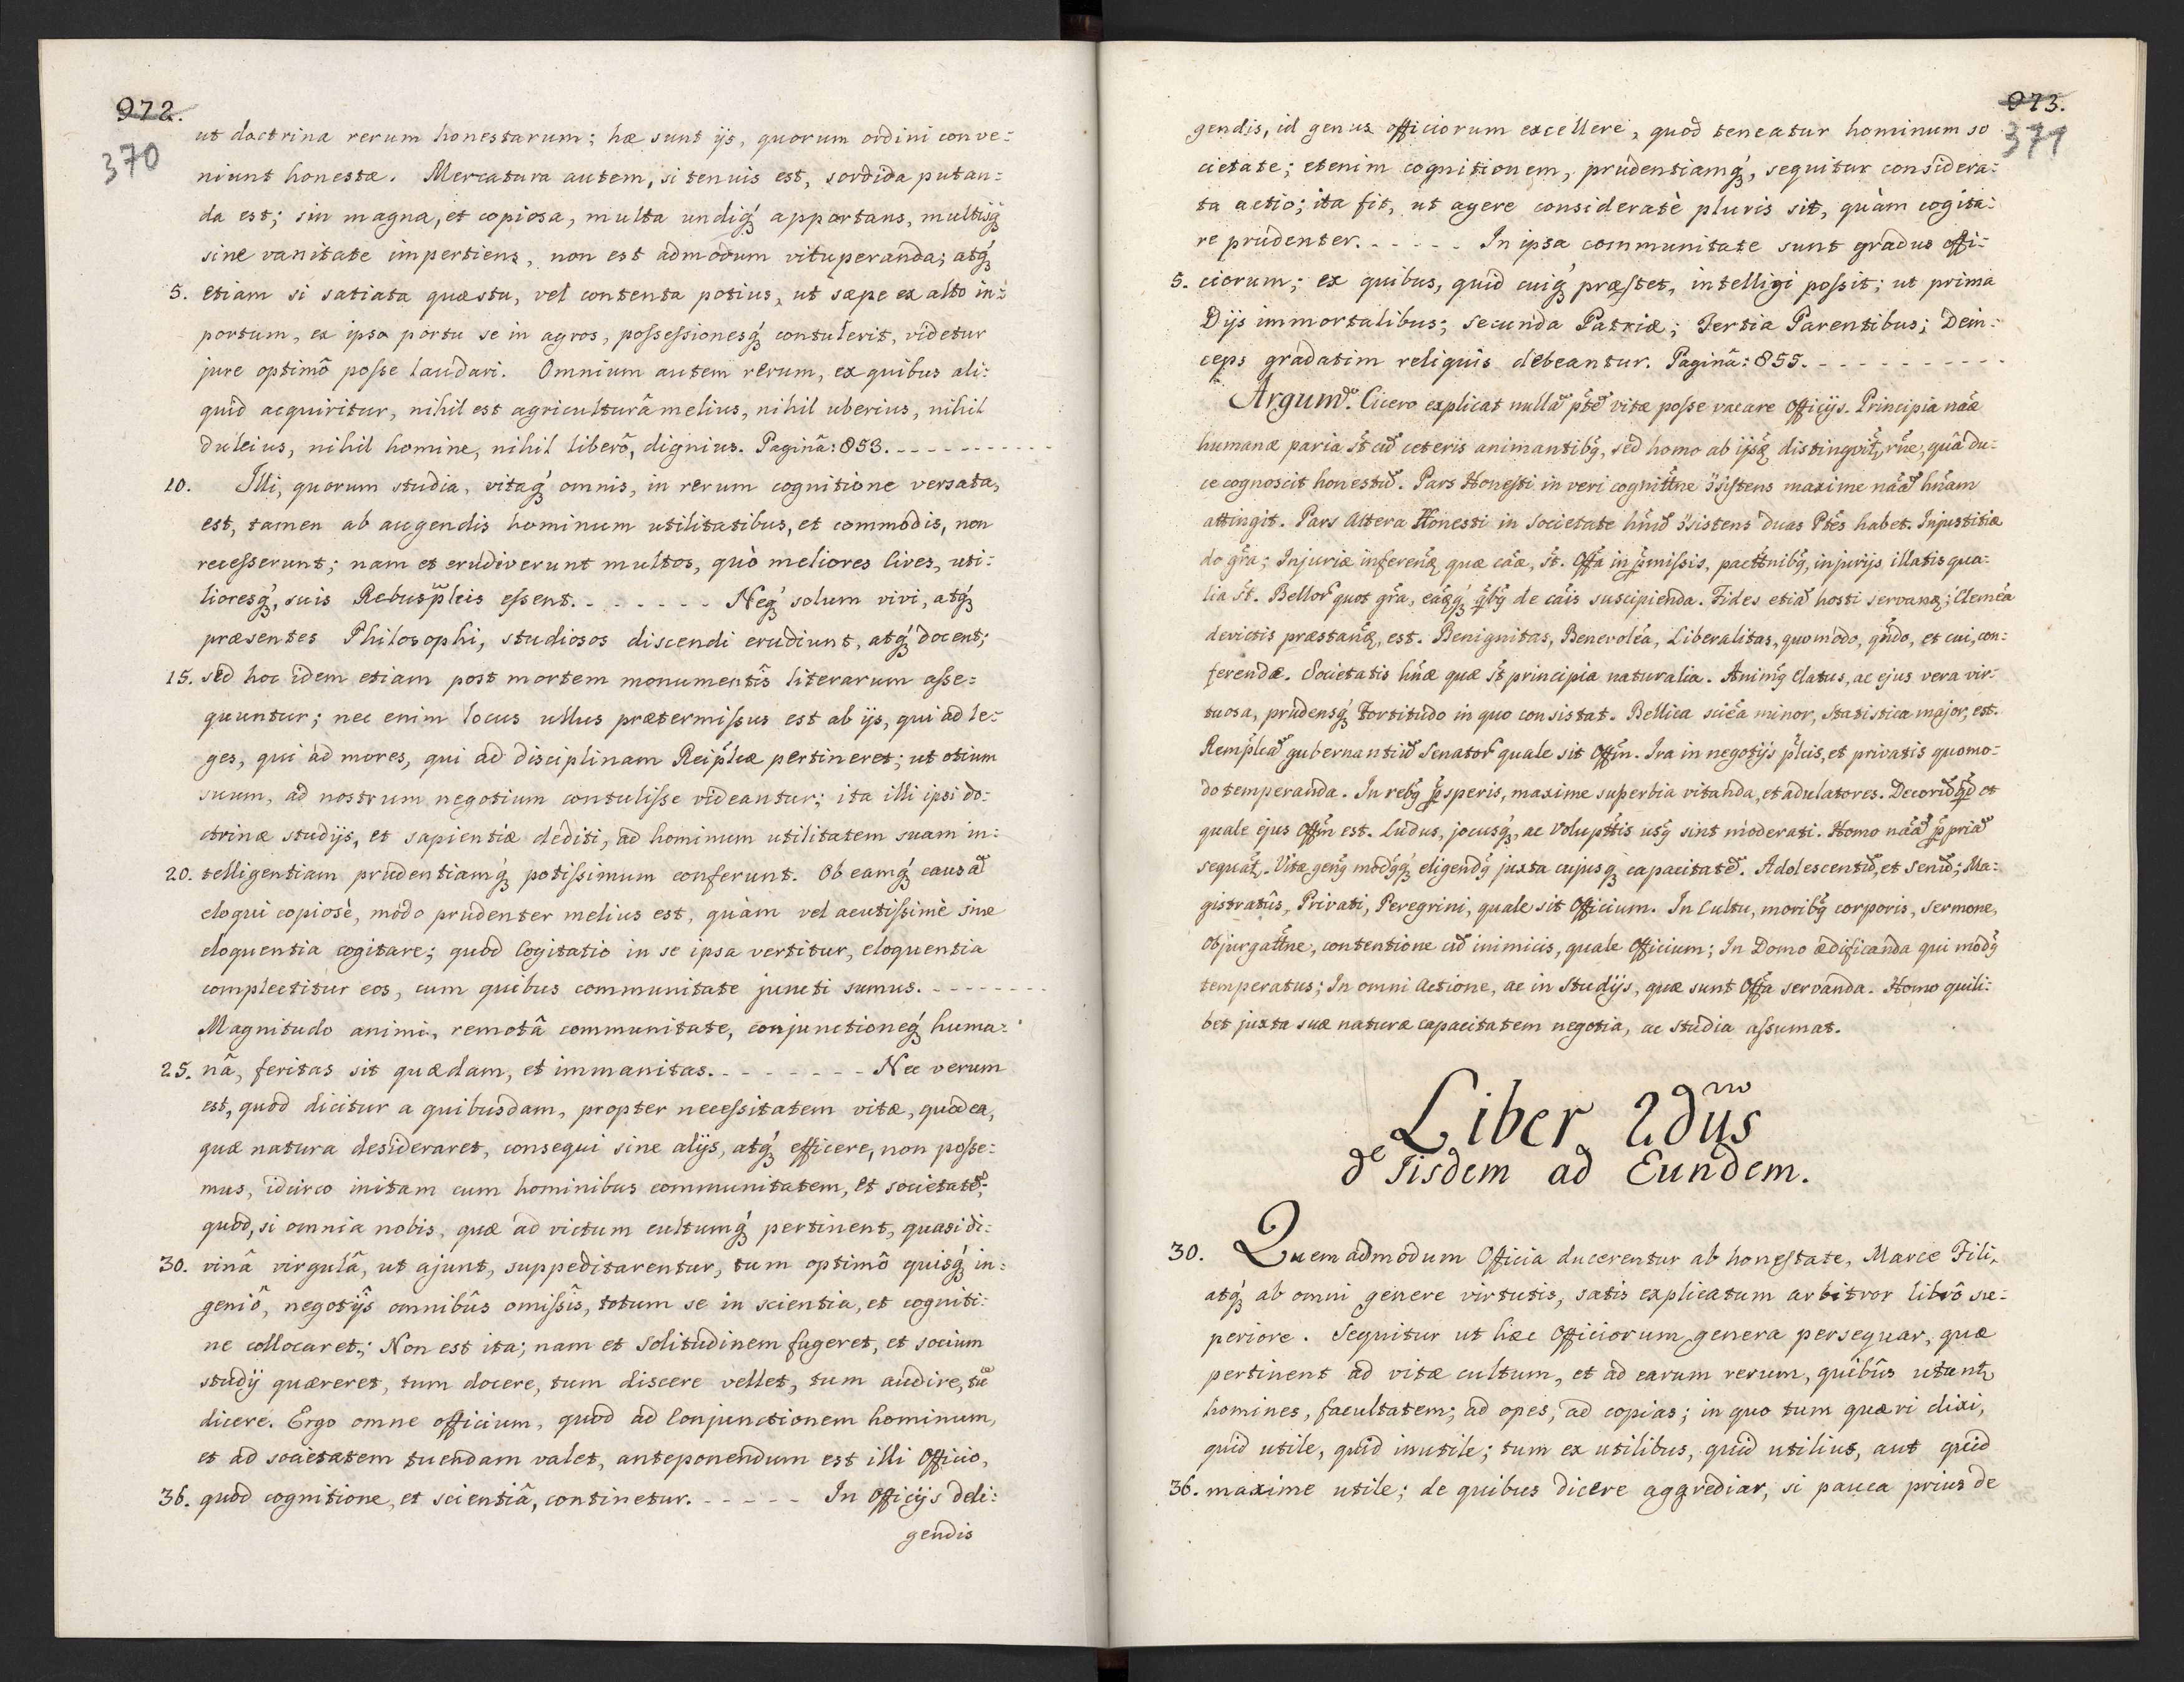 972.
370
ut doctrina rerum honestarum; hæ sunt ijs, quorum ordini conve:
niunt honestæ. Mercatura autem, si tenuis est, sordida putan:
da est; sin magna, et copiosa, multa undiq́ꝫ apportans, multisq́ꝫ
sine vanitate impertiens, non est admodum vituperanda; atq́ꝫ
5. etiam si satiata quæstu, vel contenta potius, ut sæpe ex alto in:
portum, ex ipso portu se in agros, possessionesq́ꝫ contulerit, videtur
jure optimô posse laudari. Omnium autem rerum, ex quibus ali:
quid acquiritur, nihil est agriculturâ melius, nihil uberius, nihil
dulcius, nihil homine, nihil liberô, dignius. Paginâ: 853. - - - - - - - - - -
10. Illi, quorum studia, vitaq́ꝫ omnis, in rerum cognitione versata,
est, tamen ab augendis hominum utilitatibus, et commodis, non
recesserunt; nam et erudiverunt multos, quò meliores Cives, uti:
lioresq́ꝫ, suis Rebuspl̃cis essent. - - - - - - - Neq́ꝫ solum vivi, atq́ꝫ
præsentes Philosophi, studiosos discendi erudiunt, atq́ꝫ docent;
15. sed hoc idem etiam post mortem monumentîs literarum asse:
quuntur; nec enim locus ullus prætermissus est ab ijs, qui ad le:
ges, qui ad mores, qui ad disciplinam Reipl̃cæ pertineret; ut otium
suum, ad nostrum negotium contulisse videantur; ita illi ipsi do:
ctrinæ studijs, et sapientiæ dediti, ad hominum utilitatem suam in:
20. telligentiam prudentiamq́ꝫ potissimum conferunt. Ob eamq́ꝫ causã
eloqui copiosè, modo prudenter melius est, quàm vel acutissimè sine
eloquentia cogitare; quod Cogitatio in se ipsa vertitur, eloquentia
complectitur eos, cum quibus communitate juncti sumus. - - - - - - - -
Magnitudo animi, remotâ communitate, conjunctioneq́ꝫ huma:
25. nâ, feritas sit quædam, et immanitas. - - - - - - - - Nec verum
est, quod dicitur a quibusdam, propter necessitatem vitæ, quod ea,
quæ natura desideraret, consequi sine alijs, atq́ꝫ efficere, non posse:
mus, idcirco initam cum hominibus communitatem, et societatẽ;
quod, si omnia nobis, quæ ad victum cultumq́ꝫ pertinent, quasi di:
30. vinâ virgulâ, ut ajunt, suppeditarentur, tum optimô quisq́ꝫ in:
geniô, negotijs omnibûs omissîs, totum se in scientia, et cogniti:
ne collocaret; Non est ita; nam et solitudinem fugeret, et socium
studij quæreret, tum docere, tum discere vellet, tum audire, tũ
dicere. Ergo omne officium, quod ad Conjunctionem hominum,
et ad societatem tuendam valet, anteponendum est illi Officio,
36. quod cognitione, et scientiâ, continetur. - - - - - In Officijs deli:
gendis
973.
371
gendis, id genus officiorum excellere, quod teneatur hominum so
cietate; etenim cognitionem, prudentiamq́ꝫ, sequitur considera:
ta actio; ita fit, ut agere consideratè pluris sit, quàm cogita:
re prudenter. - - - - - In ipsa communitate sunt gradus offi:
5. ciorum; ex quibus, quid cuiq́ꝫ præstet, intelligi possit; ut prima
Dijs immortalibus; secunda Patriæ; Tertia Parentibus; Dein:
ceps gradatim reliquis debeantur. Paginâ: 855. - - - - - - - - - -
Argum̃. Cicero explicat nullã p̃tẽ vitæ posse vacare Officijs. Principia nãæ
humanæ paria s̃t cũ ceteris animantibꝫ, sed homo ab ijsꝫ distingvit̃, rñe, quâ du:
ce cognoscit honestũ. Pars Honesti in veri cognit̃ne 3sistens maxime nãã hñam
attingit. Pars Altera Honesti in Societate hñũ 3sistens duas Ptẽs habet. Injustitiæ
do g̃ra; Injuriæ inferenꝫ quæ cãæ, s̃t. Off̃a in p̃missis, pact̃nibꝫ, injurijs illatis qua:
lia s̃t. Bellor̃ quot g̃ra, eãqꝫ q̃bꝫ de cãis suscipienda. Fides etiã hosti servanꝫ; Clemẽa
devictis præstanꝫ, est. Benignitas, Benevolẽa, Liberalitas, quomodo, qñdo, et cui, con:
ferendæ. Societatis hñæ quæ s̃t principia naturalia. Animꝫ Elatus, ac ejus vera vir:
tuosa, prudensq́ꝫ Fortitudo in quo consistat. Bellica sciẽa minor, Statistica major, est.
Rempl̃cã gubernantiũ Senator̃ quale sit Off̃m. Ira in negotijs pl̃cis, et privatis quomo:
do temperanda. In rebꝫ p̃speris, maxime superbia vitanda, et adulatores. Decorũ q̃d et
quale ejus Off̃m est. Ludus, jocusq́ꝫ, ac Volupt̃tis usꝫ sint moderati. Homo nãã p̃priã
sequãt̃. Vitæ genꝫ modꝫqꝫ eligendꝫ juxta cujusqꝫ capacitatẽ. Adolescentiũ, et Senũ; Ma:
gistratûs, Privati, Peregrini, quale sit Officium. In Cultu, moribꝫ corporis, Sermone,
Objurgat̃ne, contentione cũ inimicis, quale Officium; In Domo ædificanda qui modꝫ
temperatus; In omni Actione, ac in Studijs, quæ sunt Off̃a servanda. Homo quili:
bet juxta suæ naturæ capacitatem negotia, ac studia assumat.
Liber 2dus
de Iisdem ad Eundem.
30. Quemadmodum Officia ducerentur ab honestate, Marce Fili,
atq́ꝫ ab omni genere virtutis, satis explicatum arbitror librô su:
periore. Sequitur ut hæc Officiorum genera persequar, quæ
pertinent ad vitæ cultum, et ad earum rerum, quibûs utunt̃
homines, facultatem; ad opes, ad copias; in quo tum quæri dixi,
quid utile, quid inutile; tum ex utilibus, quid utilius, aut quid
36. maxime utile; de quibus dicere aggrediar, si pauca prius de